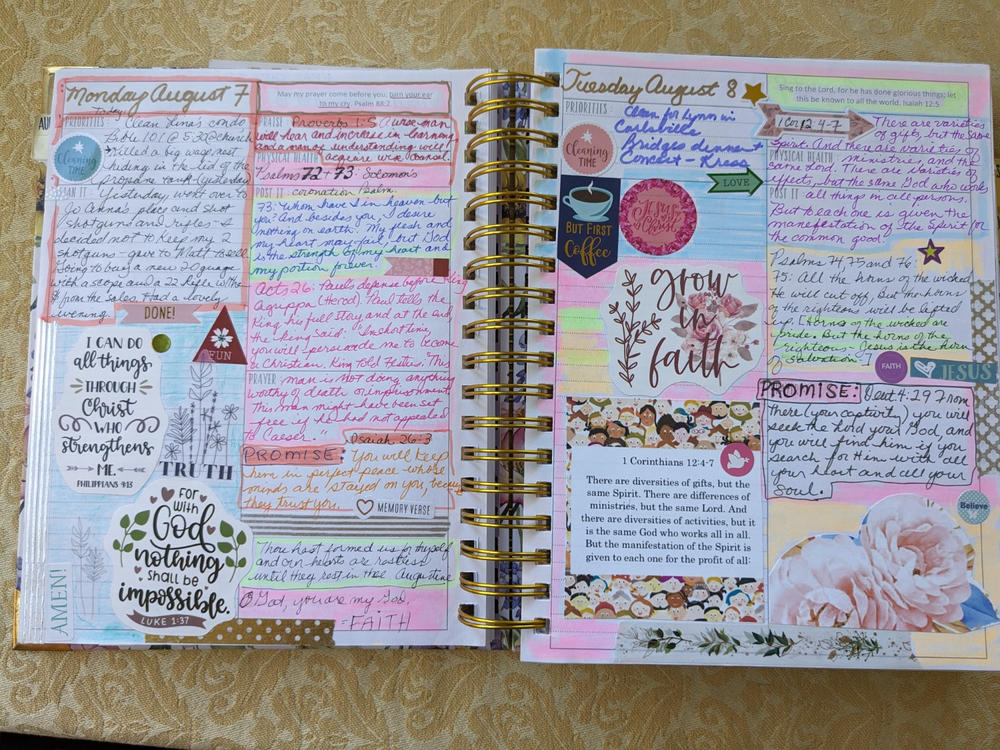 Monday August 7
PRIORITIES: Today Clean Tina's condo
Bible 101 @ 5:30 @ church
Killed a big wasp nest
hiding in the lid of the
propane tank (yesterday
Yesterday, went over to
Jo Anna's place and shot
shotguns and rifles. I
decided not to keep my 2
shotguns - gave to Matt to sell.
Going to buy a new 20 guage
with a scope and a 22 rifle with the
$ from the sales. Had a lovely
evening.
Cleaning
TIME
DONE!
I CAN DO
all things
THROUGH
Christ
WHO
strengthens
ME.
PHILIPPIANS 4:13
FUN
TRUTH
FOR
with
God
nothing
shall be
impossible.
LUKE 1:37
AMEN!
May my prayer come before you; turn your ear
to my cry. Psalm 88:2
PRAISE Proverbs 1:5 A wise man
will hear and increase in learning
and a man of understanding will
PHYSICAL HEALTH acquire wise counsel.
Psalms 72 + 73: Solomon's
POST IT: coronation Psalm.
73: Whom have I in heaven but
you? And besides you, I desire
nothing on earth. My flesh and
my heart may fail, but God
is the strength of my heart and
my portion forever.
Acts 26: Paul's defense before King
Agrippa (Herod). Paul tells the
King his full story and at the end,
the king said: "In short time,
you will persuade me to become
a Christian. King told Festus "This
PRAYER man is not doing anything
worthy of death or imprisonment.
This man might have been set
free if he had not appealed
to Caeser."
Isaiah 26:3
PROMISE: You will keep
him in perfect peace whose
minds are stayed on you, because
they trust you.
MEMORY VERSE
Thou hast formed us for thyself
and our hearts are restless
until they rest in Thee Augustine
O God, you are my God.
- FAITH
Tuesday August 8
PRIORITIES: Clean for Lynn in
Carlsbille
Bridges dinner +
Concert - Kress
Cleaning
TIME
LOVE
BUT FIRST
Coffee
Jesus
Christ
grow
in
faith
1 Corinthians 12:4-7
There are diversities of gifts, but the
same Spirit. There are differences of
ministries, but the same Lord. And
there are diversities of activities, but it
is the same God who works all in all.
But the manifestation of the Spirit is
given to each one for the profit of all:
Sing to the Lord, for he has done glorious things; let
this be known to all the world. Isaiah 12:5
1 Cor 12 4-7 There are varieties
of gifts, but the same
Spirit. And there are varieties of
PHYSICAL HEALTH ministries, and the
same Lord. There are varieties of
effects, but the same God who works
POST IT all things in all persons.
But to each one is given the
manefestation of the Spirit for
the common good.
Psalms 74, 75 and 76:
75: All the horns of the wicked
He will cut off, But the horns
of the righteous will be lifted
up. [Horns of the wicked are
pride. But the horn of the
righteous - Jesus is the horn
of salvation]
FAITH
JESUS
PROMISE: Deut 4:29 From
there (your captivity) you will
seek the Lord your God, and
you will find him if you
search for Him with all
your heart and all your
soul.
Believe